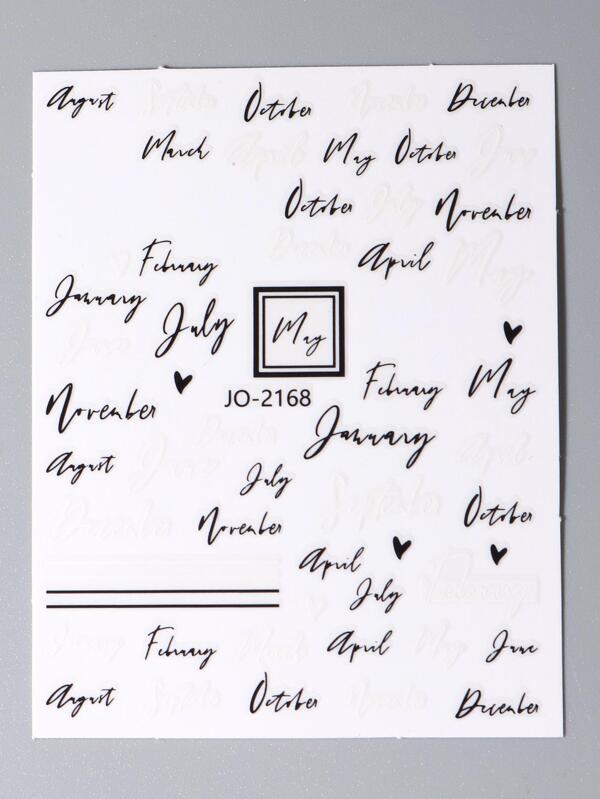 August October December
March May October
October November
February April
January
July May
February May
November JO-2168
January
August
July
October
November
April
July
February April June
August October December